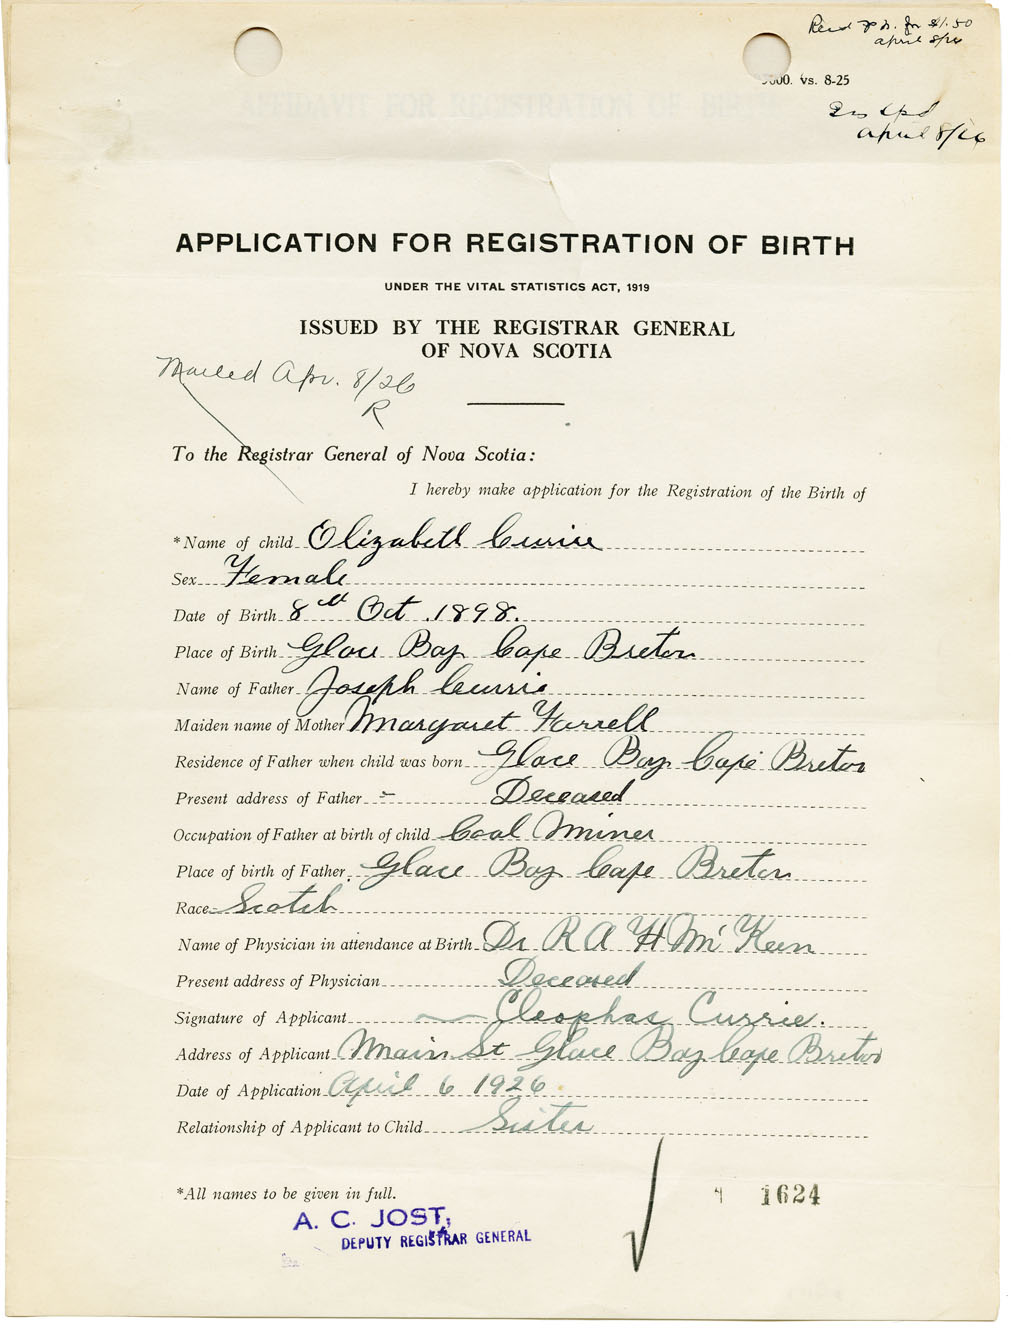 Recd P.N. for $1.50
april 8/26
5000. vs. 8-25
april 8/26
APPLICATION FOR REGISTRATION OF BIRTH
UNDER THE VITAL STATISTICS ACT, 1919
ISSUED BY THE REGISTRAR GENERAL
OF NOVA SCOTIA
Mailed Apr. 8/26
R
To the Registrar General of Nova Scotia:
I hereby make application for the Registration of the Birth of
*Name of child Elizabeth Currie
Sex Female
Date of Birth 8th Oct. 1898.
Place of Birth Glace Bay Cape Breton
Name of Father Joseph Currie
Maiden name of Mother Margaret Farrell
Residence of Father when child was born Glace Bay Cape Breton
Present address of Father - Deceased
Occupation of Father at birth of child Coal Miner
Place of birth of Father Glace Bay Cape Breton
Race Scotch
Name of Physician in attendance at Birth Dr R A H McKeen
Present address of Physician Deceased
Signature of Applicant Cleophas Currie.
Address of Applicant Main St Glace Bay Cape Breton
Date of Application April 6 1926
Relationship of Applicant to Child Sister
*All names to be given in full.
1624
A. C. JOST,
DEPUTY REGISTRAR GENERAL